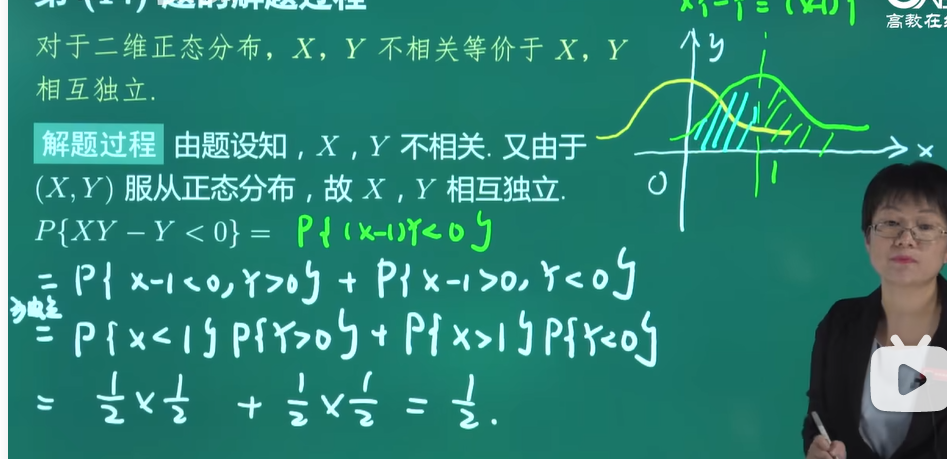 对于二维正态分布，X，Y 不相关等价于 X，Y
相互独立.
解题过程 由题设知，X，Y 不相关. 又由于
(X,Y) 服从正态分布，故 X，Y 相互独立.
P{XY − Y < 0} = P{(X-1)Y<0}
= P{X-1<0,Y>0} + P{X-1>0,Y<0}
= P{X<1}P{Y>0} + P{X>1}P{Y<0}
= 1/2 × 1/2 + 1/2 × 1/2 = 1/2.
y
x
0
1
高教在